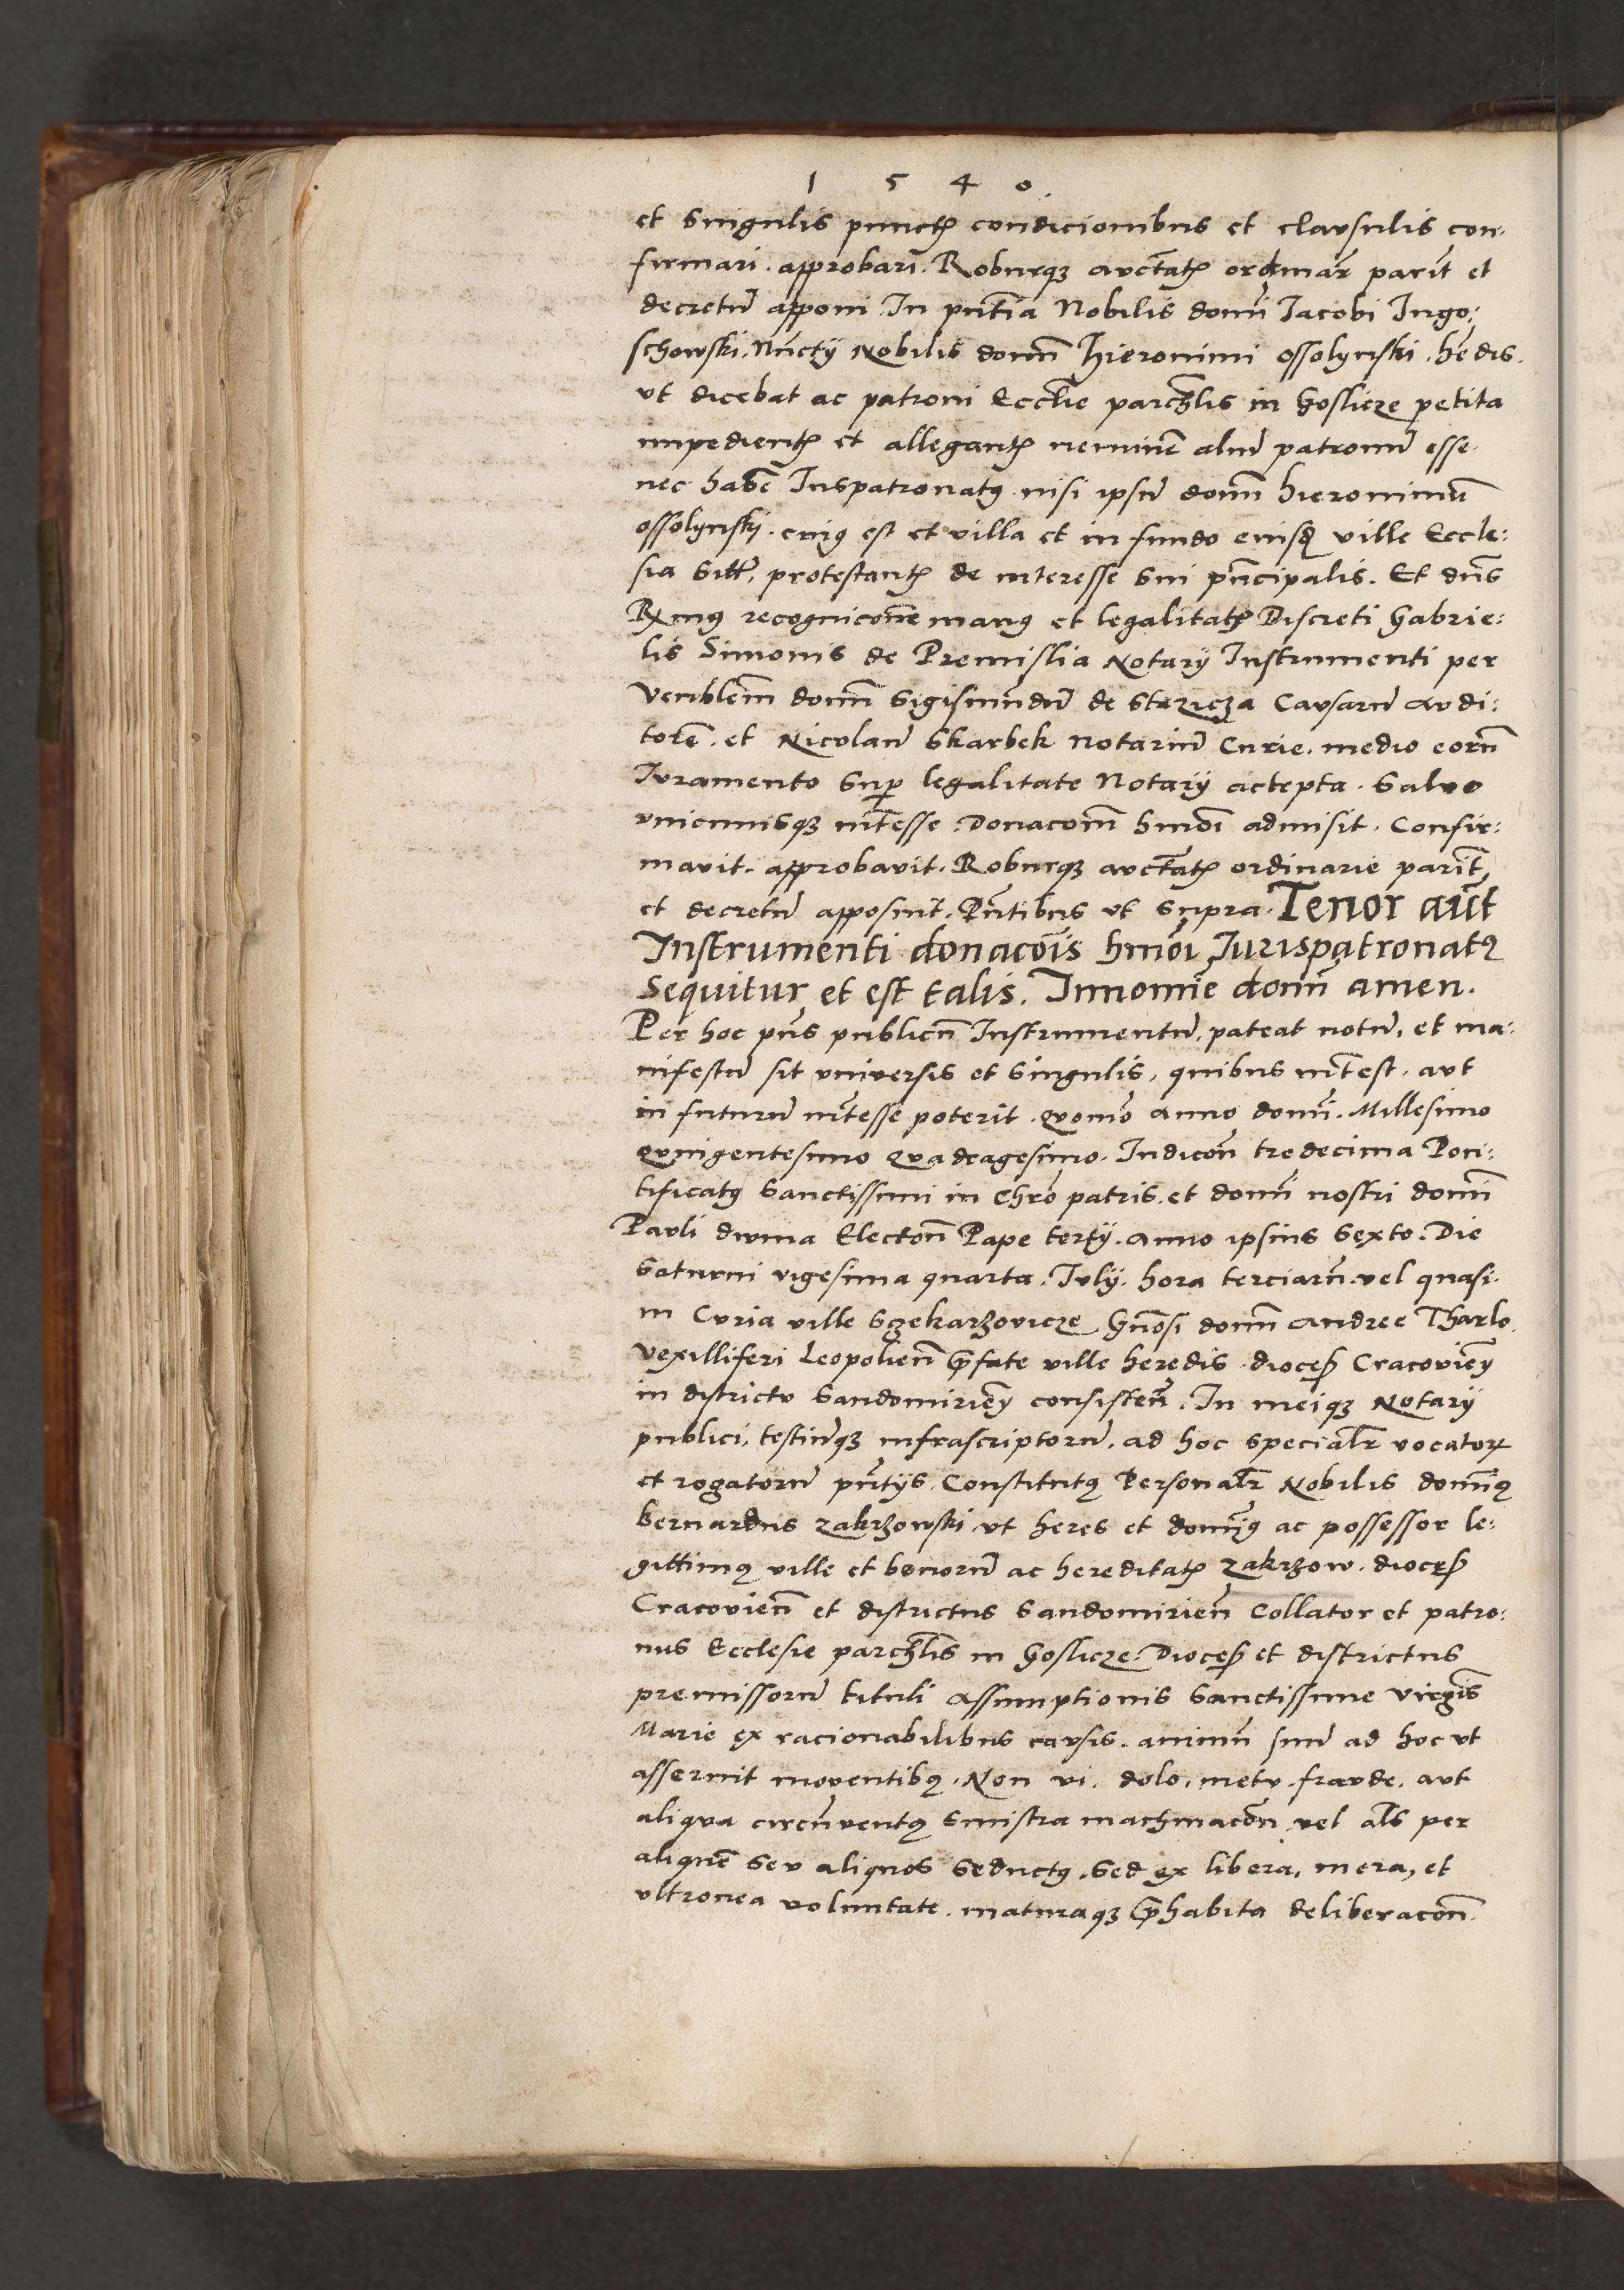 1 5 4 0.
et singulis punctis condicionibus et clausulis con-
firmari. approbari. Roburque auctātis ordinār parit̄ et
decretū apponi. In pn̄tia Nobilis domī Iacobi Ingo:
schowski. Nūctij Nobilis domī Hieronimi ossolynski. hēdis.
vt dicebat ac patroni Eccl̄ie parch̄lis in Goslicze petita
impedientis et allegantis neminē aliū patronū esse.
nec habē Iuspatronatus nisi ipsū domī hieronimū
ossolynski. cuius est et villa et in fundo eiusd ville Eccle:
sia sitt̄, protestantis de interesse sui pn̄cipalis. Et dn̄s
Rmus recognicōne manus et legalitatis Discreti Gabrie:
lis Simonis de Premislia Notarij Instrumenti per
Venblem domī Sigismundū de Staricza Causarū Audi:
torē. et Nicolaū Skarbek Notariū Curie. medio eorū
Iuramento sup legalitate Notarij accepta. Salvo
vniuscuiusque int̄esse. Donacōm hmōi admisit. Confir:
mavit. approbavit. Roburque auctātis ordinarie parit̄
et decretū apposuit. Pn̄tibus vt supra. Tenor aūt
Instrumenti donacōis hmōi Iurispatronatus
Sequitur et est talis. Innomīe domī amen.
Per hoc pn̄s publicū Instrumentū. pateat notū, et ma:
nifestū sit vniversis et singulis, quibus int̄est. aut
in futurū int̄esse poterit. quomō Anno domī. Millesimo
quingentesimo quadragesimo. Indicōn tredecima Pon:
tificatus Sanctissimi in Chrō patris. et domī nostri domī
Pauli divina Electōn Pape tertij. Anno ipsius Sexto. Die
Saturni vigesima quarta. Iulij. hora terciarū vel quasi.
in Curia ville Sczekarzovicze Gn̄osi domī Andree Tharlo.
Vexilliferi Leopolien̄ p̄fate ville heredis. dioces Cracovien̄
in districtu Sandomirien̄ consisten̄. In meique Notarij
publici, testiūque infrascriptorū. ad hoc specialr̄ vocatorum
et rogatorū pn̄tijs. Constitutus Personalr̄ Nobilis domīus
bernardus zakrzowski vt heres et domīus ac possessor le:
gittimus ville et bonorū ac hereditatis zakrzow. dioces
Cracovien̄ et districtus Sandomirien̄ Collator et patro:
nus Ecclesie parch̄lis in Goslicze. Dioces et districtus
premissorū tituli Assumptionis Sanctissime virgīs
Marie ex racionabilibus causis. animū suū ad hoc vt
asseruit moventibus. Non vi. dolo. metu. fraude. aut
aliqua circūventus sinistra machinacōn. vel als per
aliquē seu aliquos seductus. Sed ex libera, mera, et
vltronea voluntate. maturaque p̄habita deliberacōn.